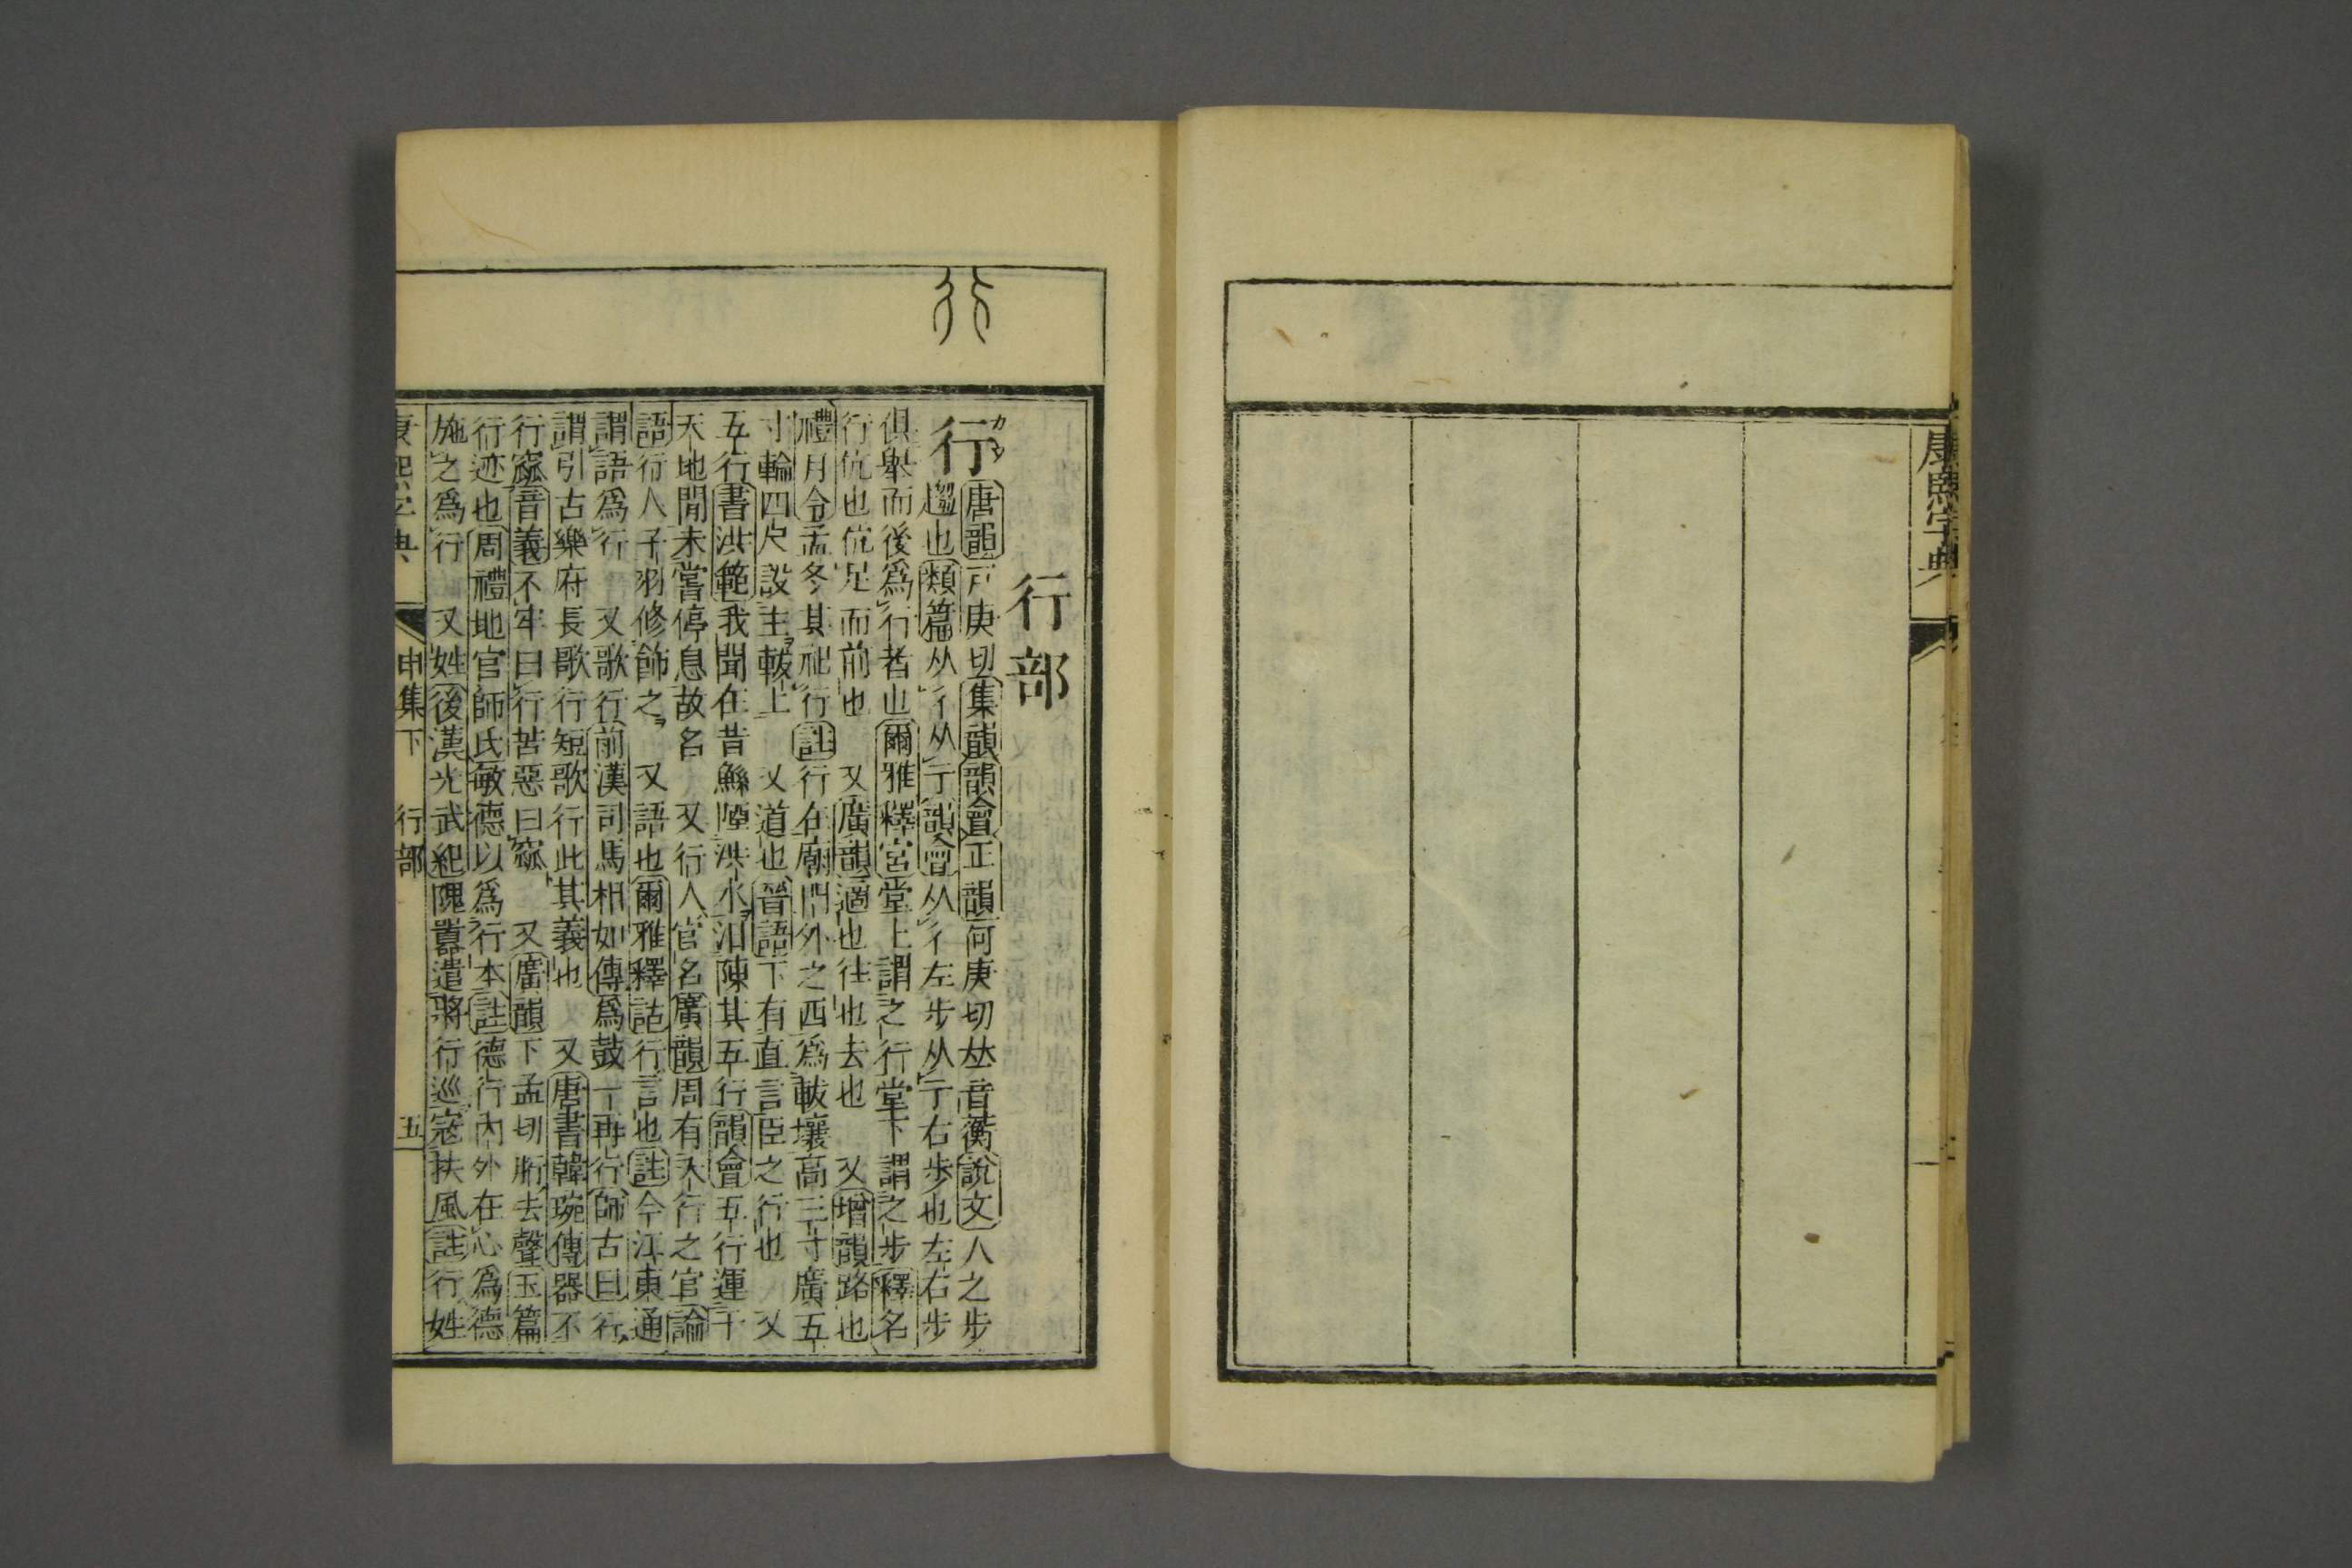 康熙字典
行部
行 カウ
唐韻戸庚切集韻韻會正韻何庚切𠀤音蘅說文人之步
趨也類篇从彳从亍韻會从彳左步从亍右步也左右步
俱舉而後爲行者也爾雅釋宮堂上謂之行堂下謂之步釋名
行伉也伉足而前也 又廣韻適也往也去也 又增韻路也
禮月令孟冬其祀行註行在廟門外之西爲軷壤高三寸廣五
寸輪四尺設主軷上 又道也晉語下有直言臣之行也 又
五行書洪範我聞在昔鯀陻洪水汨陳其五行韻會五行運于
天地閒未嘗停息故名 又行人官名廣韻周有大行之官論
語行人子羽修飾之 又語也爾雅釋詁行言也註今江東通
謂語爲行 又歌行前漢司馬相如傳爲鼓一再行師古曰行
謂引古樂府長歌行短歌行此其義也 又唐書韓琬傳器不
行窳音義不牢曰行苦惡曰窳 又廣韻下孟切胻去聲玉篇
行迹也周禮地官師氏敏德以爲行本註德行內外在心爲德
施之爲行 又姓後漢光武紀隗囂遣將行巡寇扶風註行姓
康熙字典 申集下 行部 五